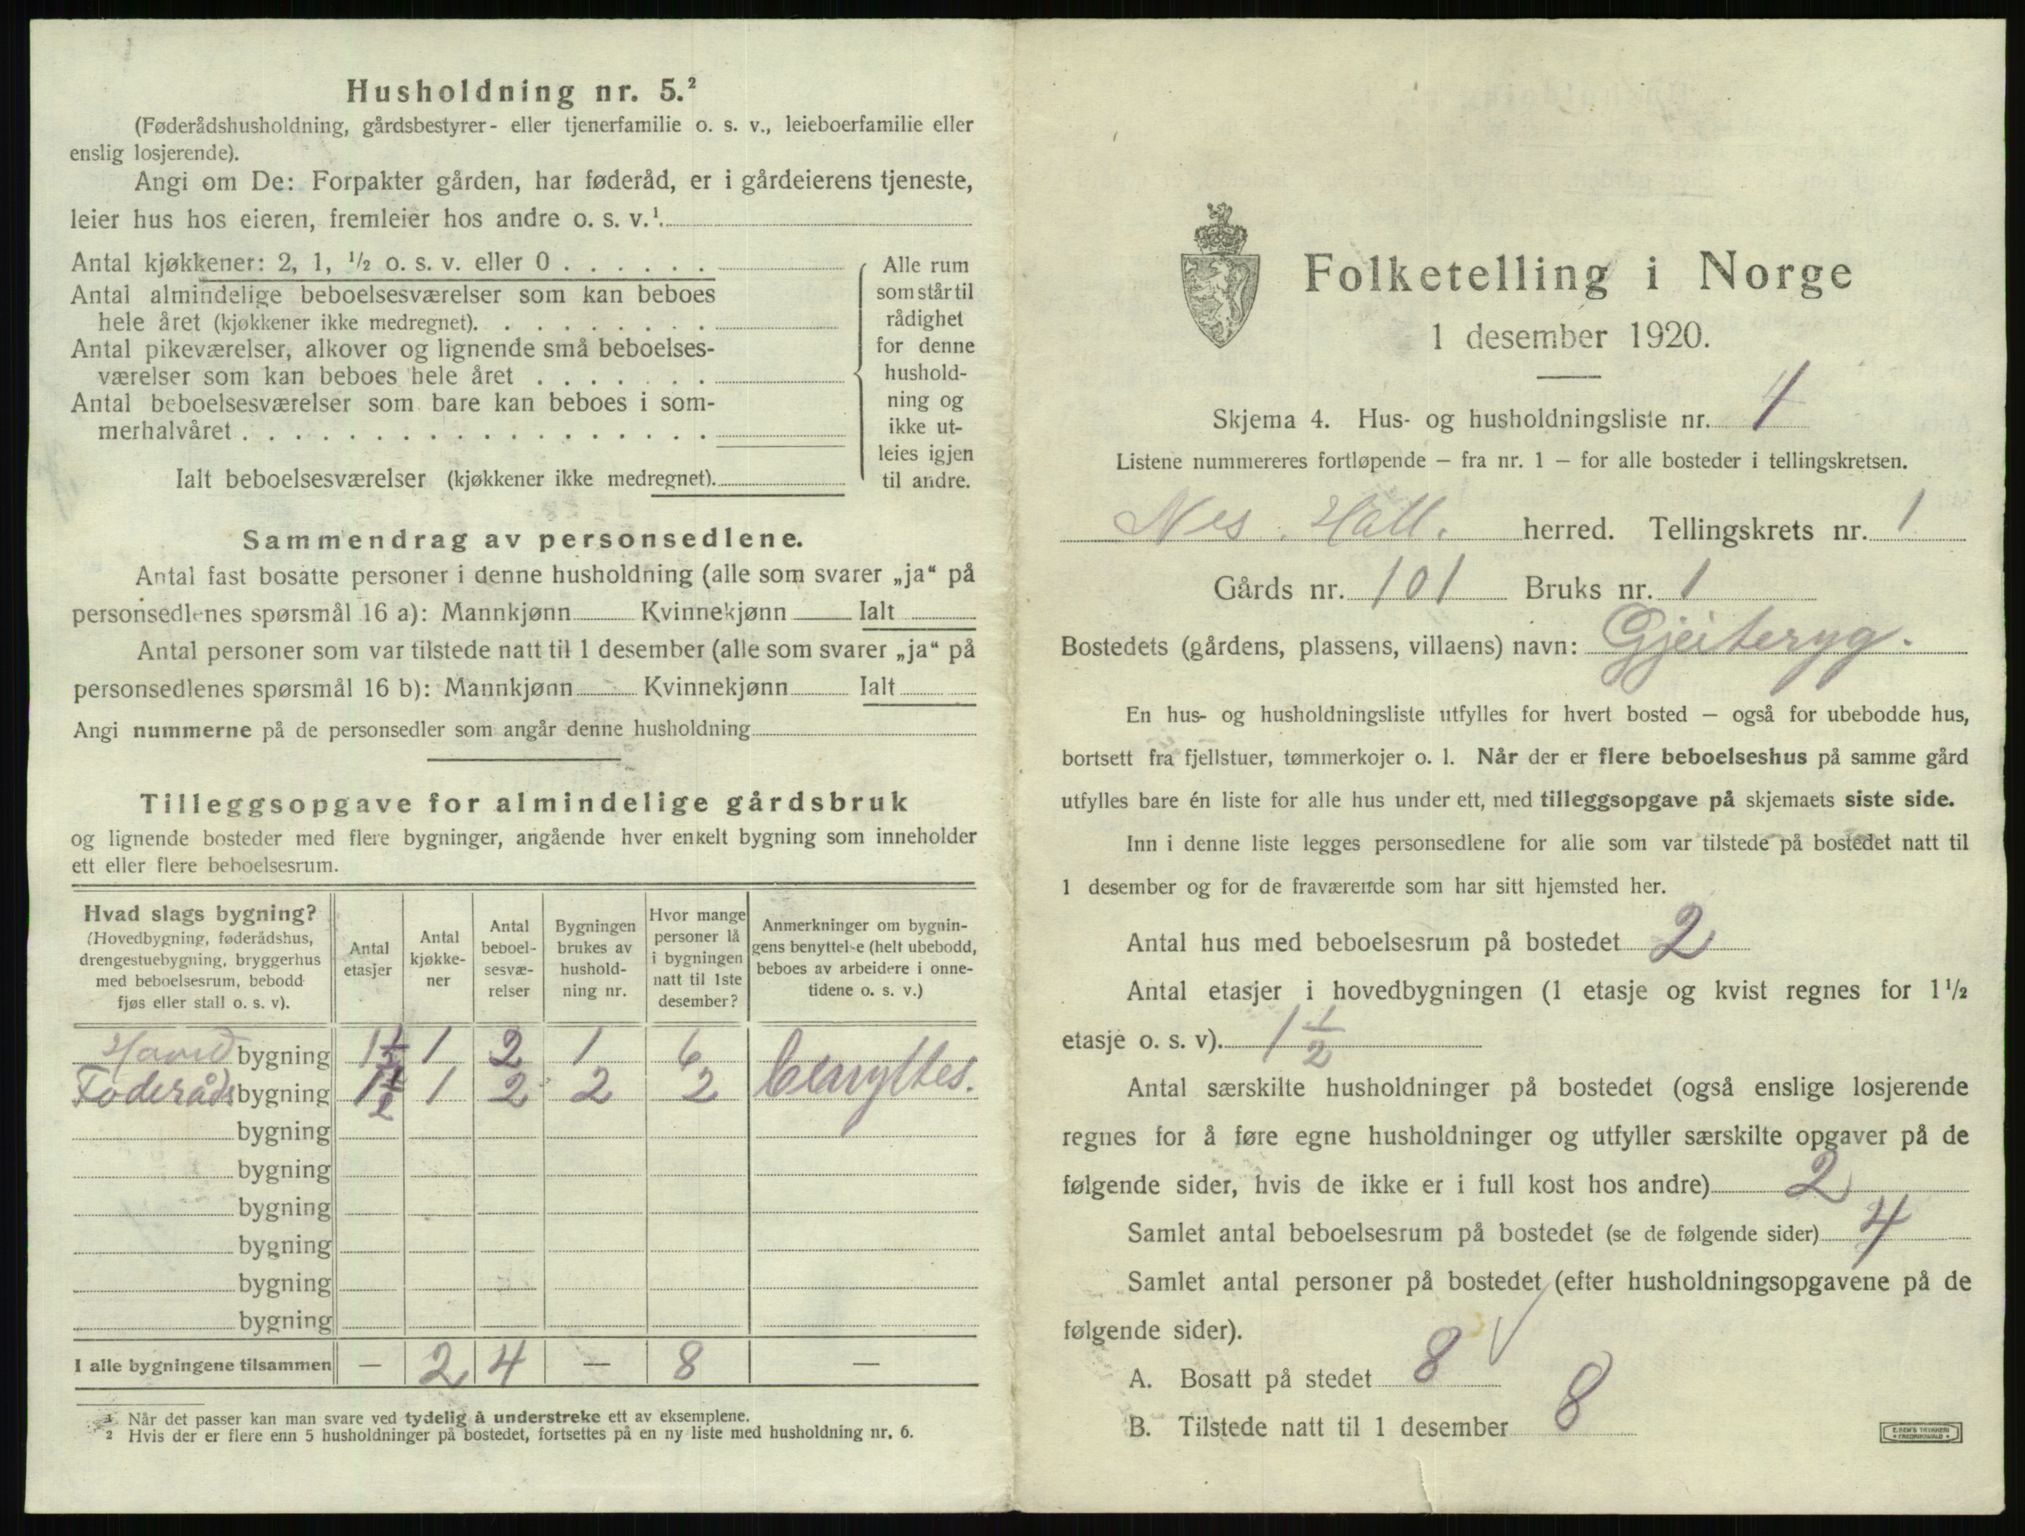 Husholdning nr. 5.²
(Føderådshusholdning, gårdsbestyrer- eller tjenerfamilie o. s. v., leieboerfamilie eller
enslig losjerende).
Angi om De: Forpakter gården, har føderåd, er i gårdeierens tjeneste,
leier hus hos eieren, fremleier hos andre o. s. v.¹
Antal kjøkkener: 2, 1, ½ o. s. v. eller 0
Antal almindelige beboelsesværelser som kan beboes
hele året (kjøkkener ikke medregnet).
Antal pikeværelser, alkover og lignende små beboelses-
værelser som kan beboes hele året
Antal beboelsesværelser som bare kan beboes i som-
merhalvåret
Ialt beboelsesværelser (kjøkkener ikke medregnet).
Alle rum
som står til
rådighet
for denne
hushold-
ning og
ikke ut-
leies igjen
til andre.
Sammendrag av personsedlene.
Antal fast bosatte personer i denne husholdning (alle som svarer „ja“ på
personsedlenes spørsmål 16 a): Mannkjønn Kvinnekjønn Ialt
Antal personer som var tilstede natt til 1 desember (alle som svarer „ja“ på
personsedlenes spørsmål 16 b): Mannkjønn Kvinnekjønn Ialt
Angi nummerne på de personsedler som angår denne husholdning
Tilleggsopgave for almindelige gårdsbruk
og lignende bosteder med flere bygninger, angående hver enkelt bygning som inneholder
ett eller flere beboelsesrum.
Hvad slags bygning?
(Hovedbygning, føderådshus,
drengestuebygning, bryggerhus
med beboelsesrum, bebodd
fjøs eller stall o. s. v).
Antal
etasjer
Antal
kjøkke-
ner
Antal
beboel-
sesvæ-
relser
Bygningen
brukes av
hushold-
ning nr.
Hvor mange
personer lå
i bygningen
natt til 1ste
desember?
Anmerkninger om bygnin-
gens benyttelse (helt ubebodd,
beboes av arbeidere i onne-
tidene o. s. v.)
Hoved bygning 1½ 1 2 1 6
Føderåds bygning 1½ 1 2 2 2 Benyttes.
bygning
bygning
bygning
bygning
bygning
bygning
I alle bygningene tilsammen — 2 4 — 8 —
¹ Når det passer kan man svare ved tydelig å understreke ett av eksemplene.
² Hvis der er flere enn 5 husholdninger på bostedet, fortsettes på en ny liste med husholdning nr. 6.
Folketelling i Norge
1 desember 1920.
Skjema 4. Hus- og husholdningsliste nr. 1
Listene nummereres fortløpende – fra nr. 1 – for alle bosteder i tellingskretsen.
Nes. Hall. herred. Tellingskrets nr. 1
Gårds nr. 101 Bruks nr. 1
Bostedets (gårdens, plassens, villaens) navn: Gjeiteryg.
En hus- og husholdningsliste utfylles for hvert bosted – også for ubebodde hus,
bortsett fra fjellstuer, tømmerkojer o. l. Når der er flere beboelseshus på samme gård
utfylles bare én liste for alle hus under ett, med tilleggsopgave på skjemaets siste side.
Inn i denne liste legges personsedlene for alle som var tilstede på bostedet natt til
1 desember og for de fraværende som har sitt hjemsted her.
Antal hus med beboelsesrum på bostedet 2
Antal etasjer i hovedbygningen (1 etasje og kvist regnes for 1½
etasje o. s. v). 1½
Antal særskilte husholdninger på bostedet (også enslige losjerende
regnes for å føre egne husholdninger og utfyller særskilte opgaver på de
følgende sider, hvis de ikke er i full kost hos andre) 2
Samlet antal beboelsesrum på bostedet (se de følgende sider) 4
Samlet antal personer på bostedet (efter husholdningsopgavene på de
følgende sider).
A. Bosatt på stedet 8
B. Tilstede natt til 1 desember 8